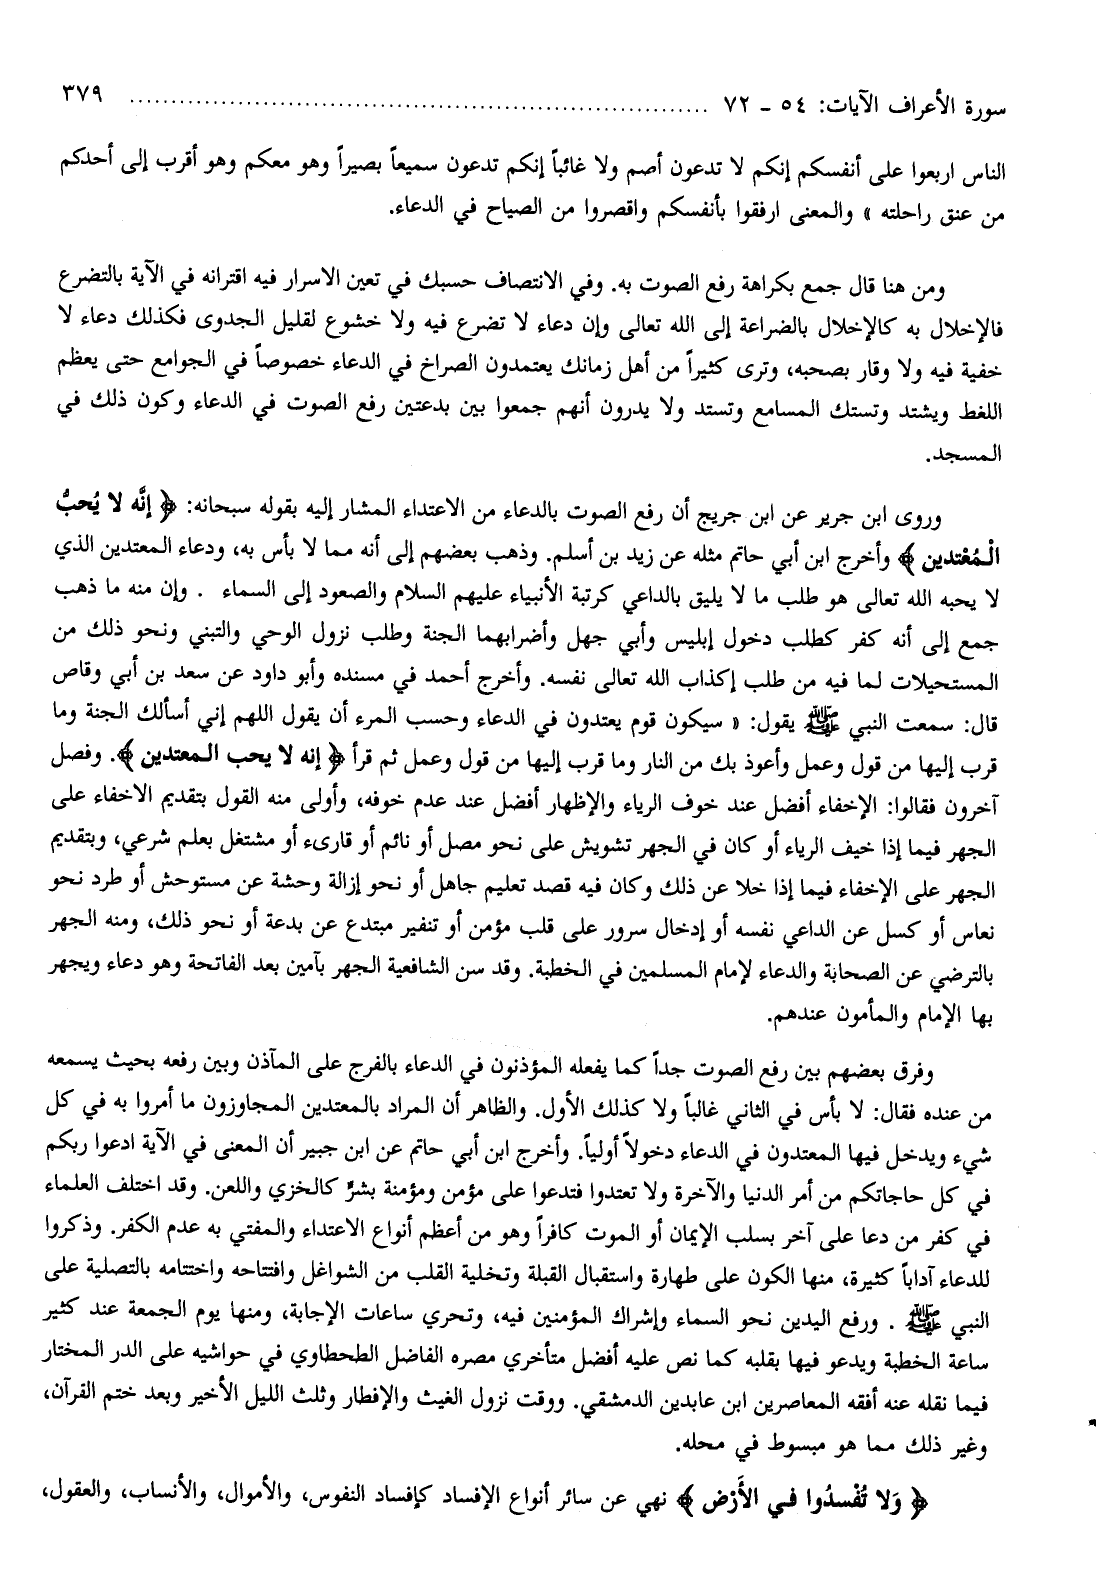 سورة الأعراف الآيات: ٥٤ - ٧٢ ........................................................................ ٣٧٩
الناس اربعوا على أنفسكم إنكم لا تدعون أصم ولا غائباً إنكم تدعون سميعاً بصيراً وهو معكم وهو أقرب إلى أحدكم
من عنق راحلته » والمعنى ارفقوا بأنفسكم واقصروا من الصياح في الدعاء.
ومن هنا قال جمع بكراهة رفع الصوت به. وفي الانتصاف حسبك في تعين الاسرار فيه اقترانه في الآية بالتضرع
فالإخلال به كالإخلال بالضراعة إلى الله تعالى وإن دعاء لا تضرع فيه ولا خشوع لقليل الجدوى فكذلك دعاء لا
خفية فيه ولا وقار بصحبه، وترى كثيراً من أهل زمانك يعتمدون الصراخ في الدعاء خصوصاً في الجوامع حتى يعظم
اللغط ويشتد وتستك المسامع وتستد ولا يدرون أنهم جمعوا بين بدعتين رفع الصوت في الدعاء وكون ذلك في
المسجد.
وروى ابن جرير عن ابن جريج أن رفع الصوت بالدعاء من الاعتداء المشار إليه بقوله سبحانه: ﴿ إنَّه لا يُحبُّ
الْمُعْتدين ﴾ وأخرج ابن أبي حاتم مثله عن زيد بن أسلم. وذهب بعضهم إلى أنه مما لا بأس به، ودعاء المعتدين الذي
لا يحبه الله تعالى هو طلب ما لا يليق بالداعي كرتبة الأنبياء عليهم السلام والصعود إلى السماء . وإن منه ما ذهب
جمع إلى أنه كفر كطلب دخول إبليس وأبي جهل وأضرابهما الجنة وطلب نزول الوحي والتبني ونحو ذلك من
المستحيلات لما فيه من طلب إكذاب الله تعالى نفسه. وأخرج أحمد في مسنده وأبو داود عن سعد بن أبي وقاص
قال: سمعت النبي ﷺ يقول: « سيكون قوم يعتدون في الدعاء وحسب المرء أن يقول اللهم إني أسألك الجنة وما
قرب إليها من قول وعمل وأعوذ بك من النار وما قرب إليها من قول وعمل ثم قرأ ﴿ إنه لا يحب المعتدين ﴾. وفصل
آخرون فقالوا: الإخفاء أفضل عند خوف الرياء والإظهار أفضل عند عدم خوفه، وأولى منه القول بتقديم الاخفاء على
الجهر فيما إذا خيف الرياء أو كان في الجهر تشويش على نحو مصل أو نائم أو قارىء أو مشتغل بعلم شرعي، وبتقديم
الجهر على الإخفاء فيما إذا خلا عن ذلك وكان فيه قصد تعليم جاهل أو نحو إزالة وحشة عن مستوحش أو طرد نحو
نعاس أو كسل عن الداعي نفسه أو إدخال سرور على قلب مؤمن أو تنفير مبتدع عن بدعة أو نحو ذلك، ومنه الجهر
بالترضي عن الصحابة والدعاء لإمام المسلمين في الخطبة. وقد سن الشافعية الجهر بآمين بعد الفاتحة وهو دعاء ويجهر
بها الإمام والمأمون عندهم.
وفرق بعضهم بين رفع الصوت جداً كما يفعله المؤذنون في الدعاء بالفرج على المآذن وبين رفعه بحيث يسمعه
من عنده فقال: لا بأس في الثاني غالباً ولا كذلك الأول. والظاهر أن المراد بالمعتدين المجاوزون ما أمروا به في كل
شيء ويدخل فيها المعتدون في الدعاء دخولاً أولياً. وأخرج ابن أبي حاتم عن ابن جبير أن المعنى في الآية ادعوا ربكم
في كل حاجاتكم من أمر الدنيا والآخرة ولا تعتدوا فتدعوا على مؤمن ومؤمنة بشرٍّ كالخزي واللعن. وقد اختلف العلماء
في كفر من دعا على آخر بسلب الإيمان أو الموت كافراً وهو من أعظم أنواع الاعتداء والمفتي به عدم الكفر. وذكروا
للدعاء آداباً كثيرة، منها الكون على طهارة واستقبال القبلة وتخلية القلب من الشواغل وافتتاحه واختتامه بالتصلية على
النبي ﷺ . ورفع اليدين نحو السماء وإشراك المؤمنين فيه، وتحري ساعات الإجابة، ومنها يوم الجمعة عند كثير
ساعة الخطبة ويدعو فيها بقلبه كما نص عليه أفضل متأخري مصره الفاضل الطحطاوي في حواشيه على الدر المختار
فيما نقله عنه أفقه المعاصرين ابن عابدين الدمشقي. ووقت نزول الغيث والإفطار وثلث الليل الأخير وبعد ختم القرآن،
وغير ذلك مما هو مبسوط في محله.
﴿ وَلا تُفْسدُوا في الأَرْض ﴾ نهي عن سائر أنواع الإفساد كإفساد النفوس، والأموال، والأنساب، والعقول،